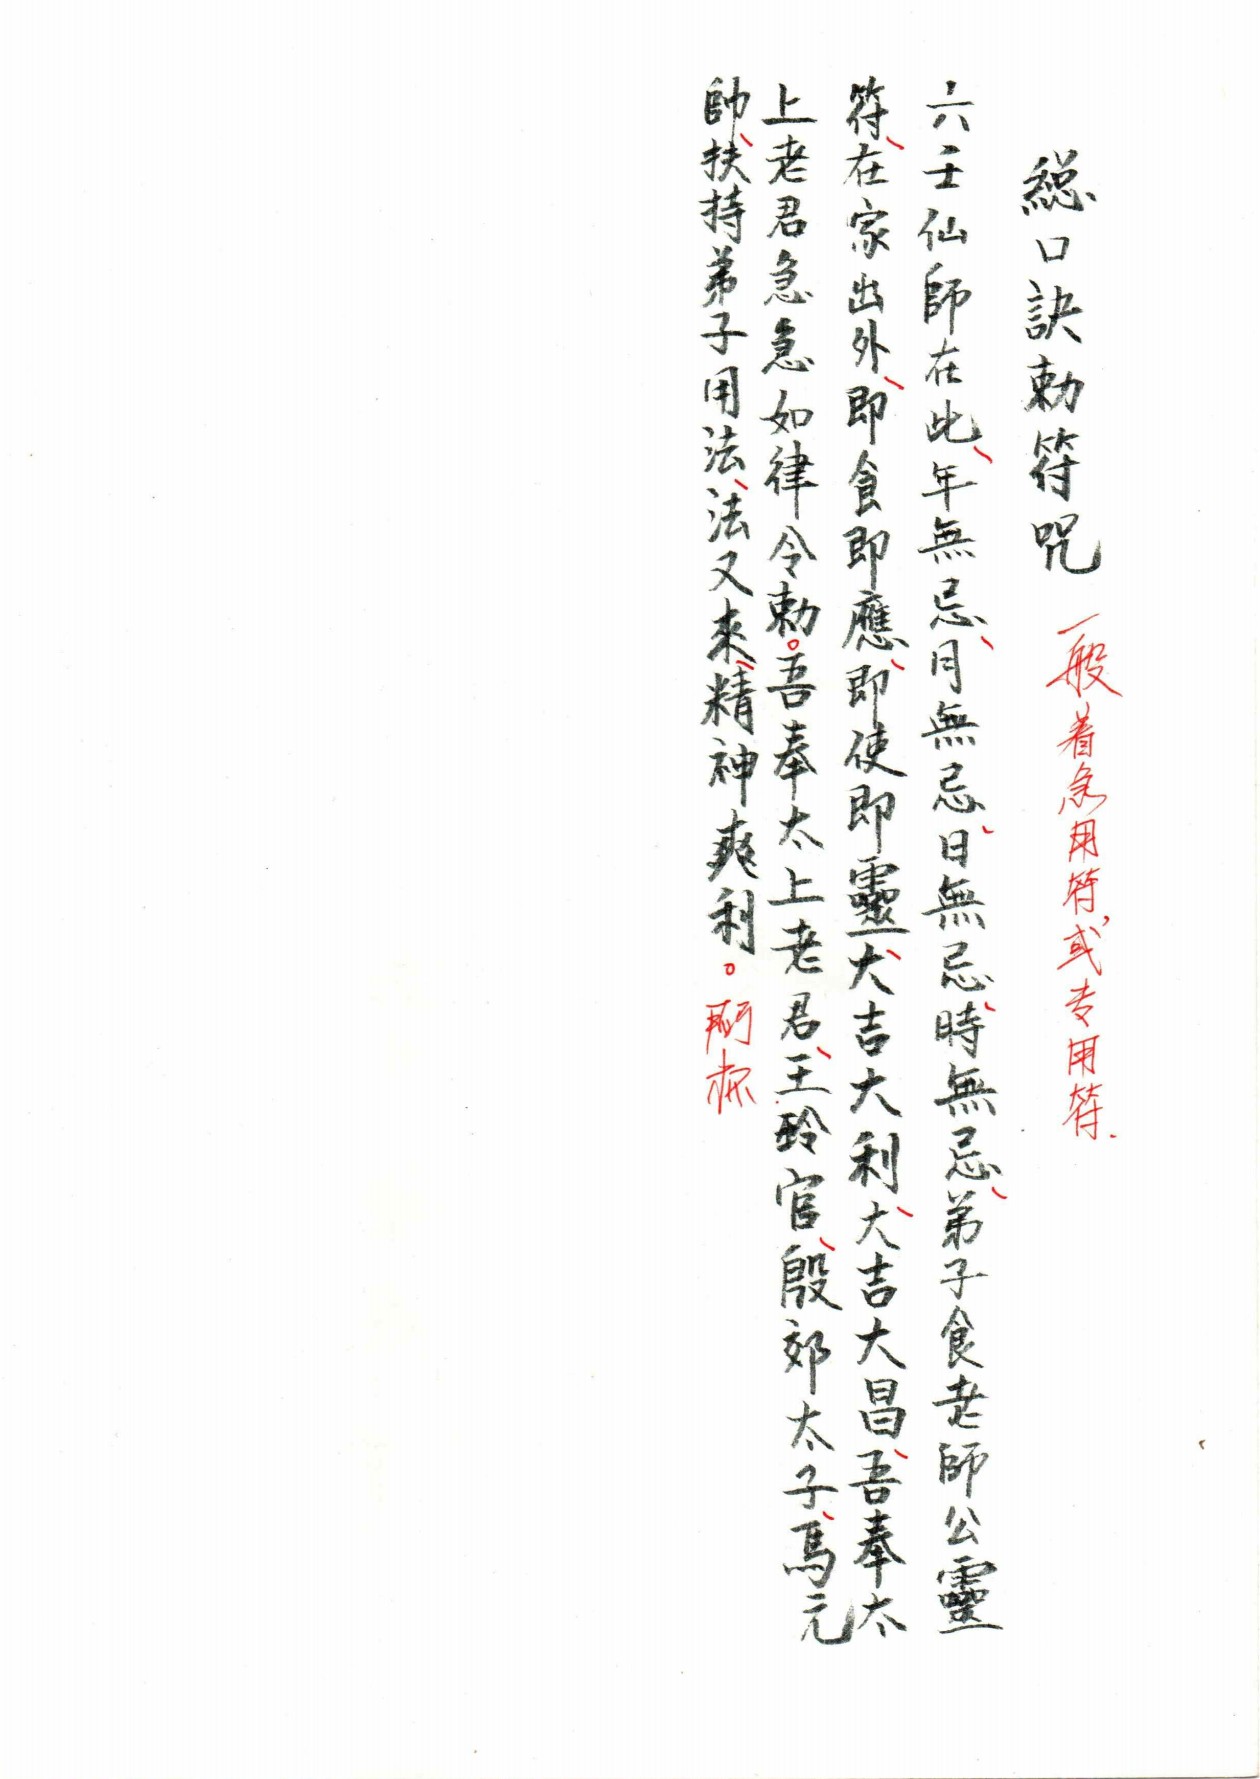 總口訣勅符咒 一般着急用符,或专用符.
六壬仙師在此、年無忌、月無忌、日無忌、時無忌、弟子食老師公靈
符、在家出外、即食即應、即使即靈、大吉大利、大吉大昌、吾奉太
上老君急急如律令勅。吾奉太上老君、王聆官、殷郊太子、馬元
帥、扶持弟子用法、法又來、精神爽利。